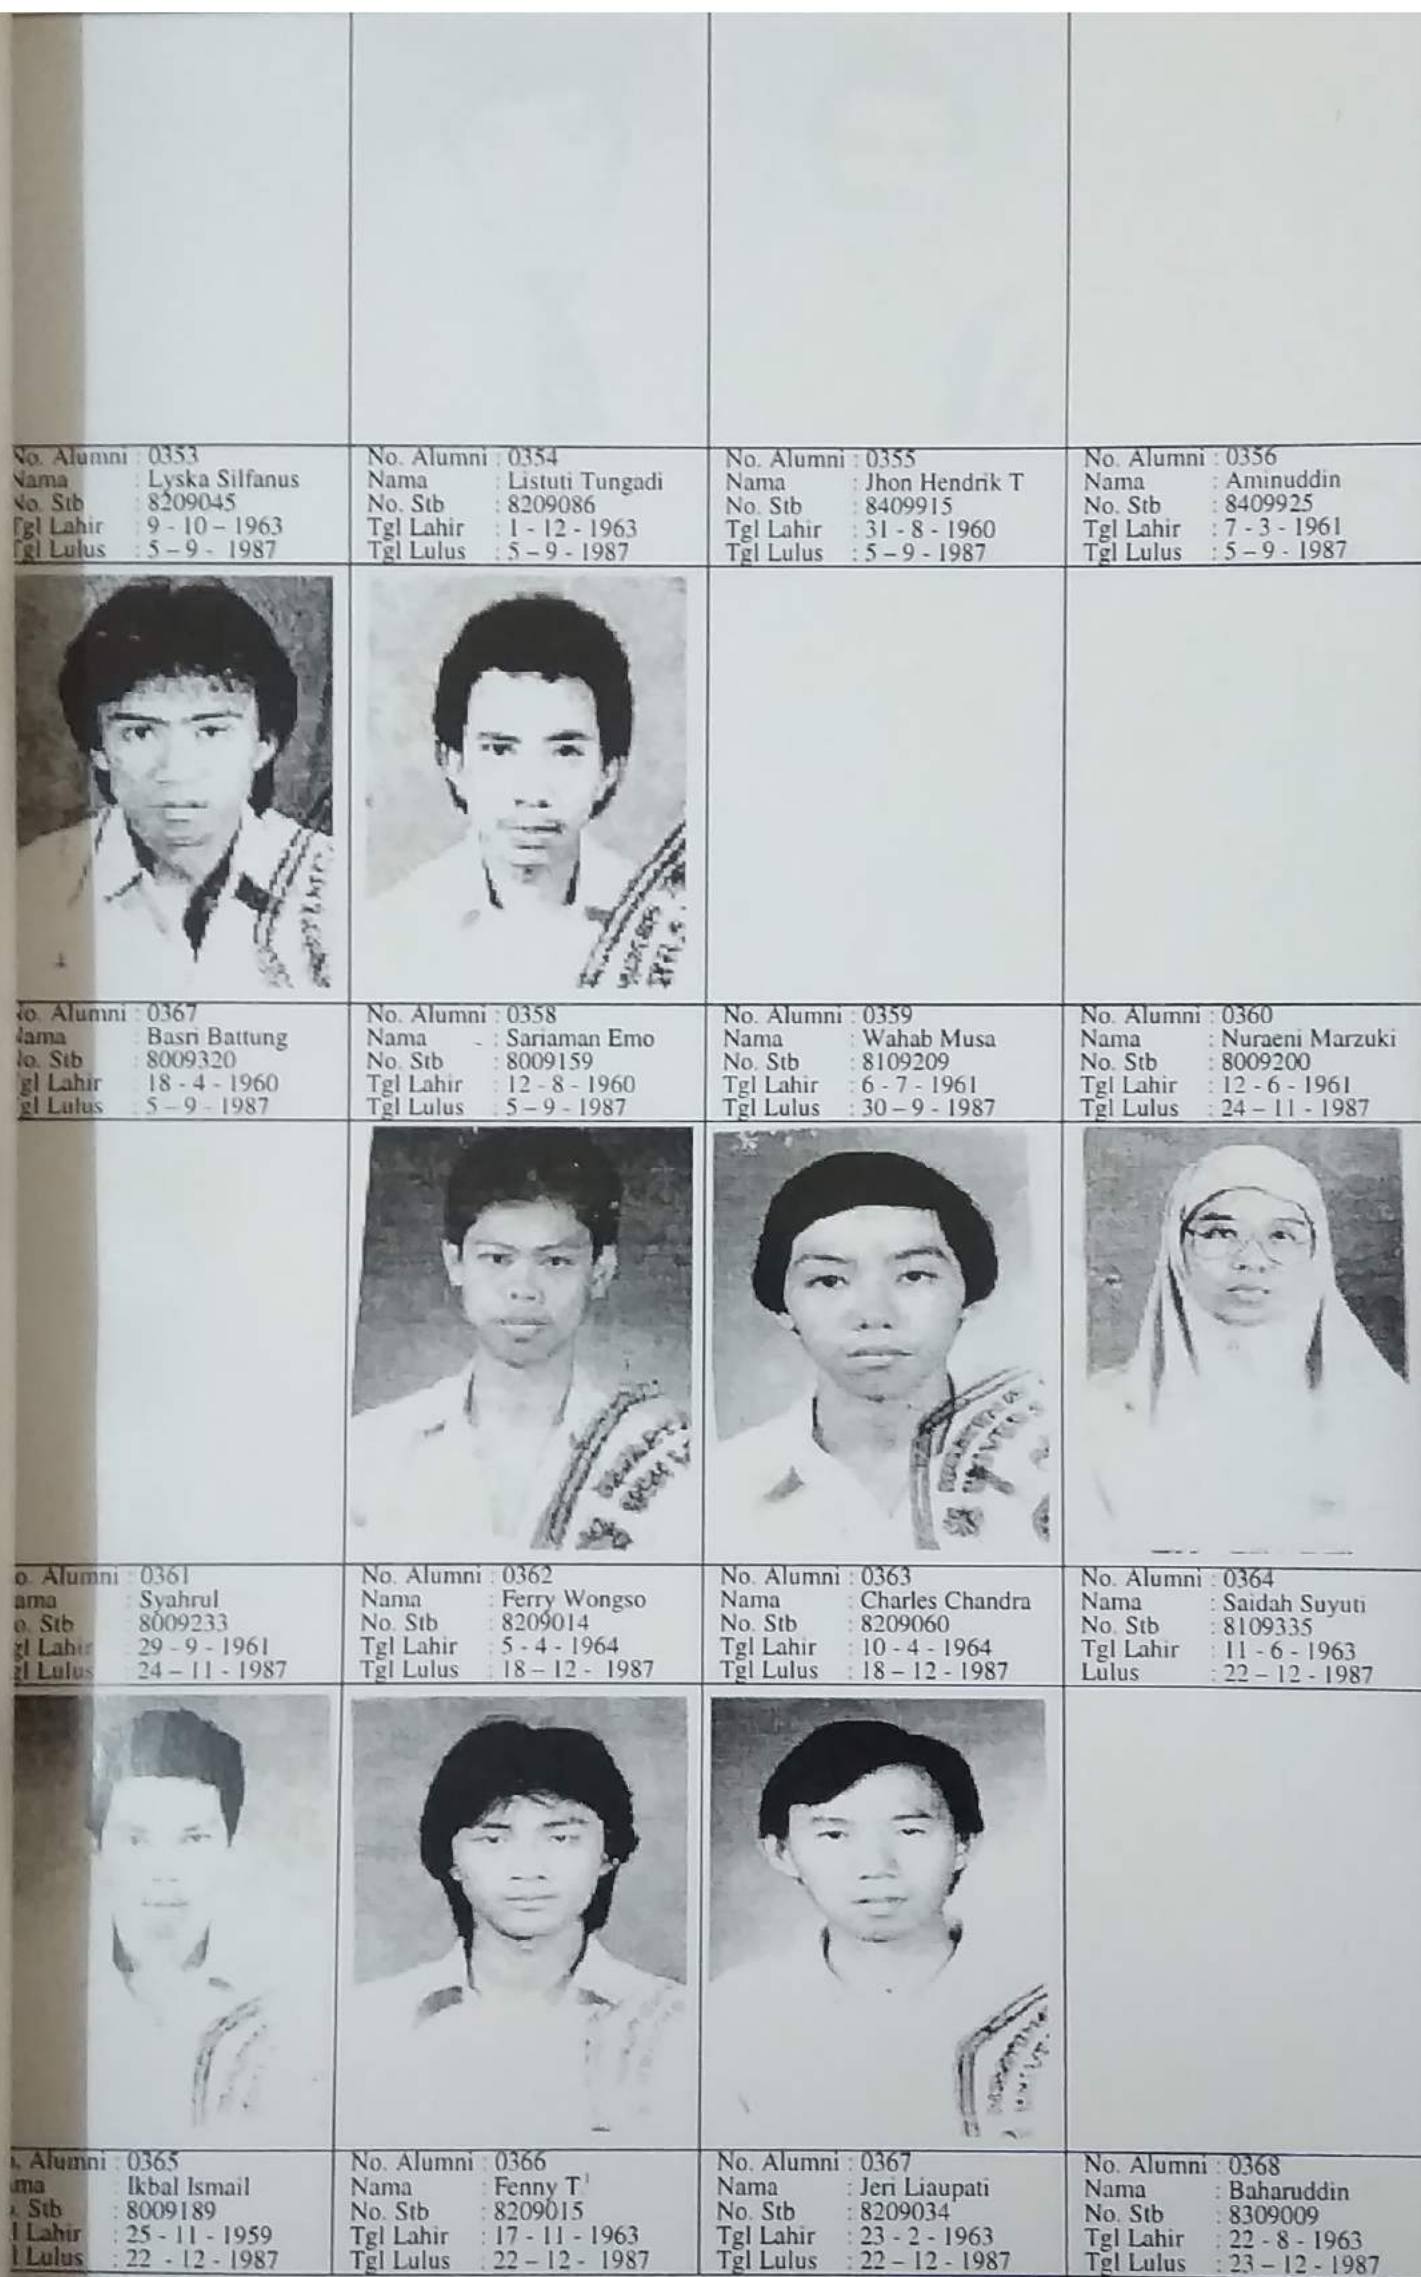 No. Alumni : 0353
Nama : Lyska Silfanus
No. Stb : 8209045
Tgl Lahir : 9 - 10 – 1963
Tgl Lulus : 5 – 9 - 1987
No. Alumni : 0354
Nama : Listuti Tungadi
No. Stb : 8209086
Tgl Lahir : 1 - 12 - 1963
Tgl Lulus : 5 – 9 - 1987
No. Alumni : 0355
Nama : Jhon Hendrik T
No. Stb : 8409915
Tgl Lahir : 31 - 8 - 1960
Tgl Lulus : 5 – 9 - 1987
No. Alumni : 0356
Nama : Aminuddin
No. Stb : 8409925
Tgl Lahir : 7 - 3 - 1961
Tgl Lulus : 5 – 9 - 1987
No. Alumni : 0367
Nama : Basri Battung
No. Stb : 8009320
Tgl Lahir : 18 - 4 - 1960
Tgl Lulus : 5 – 9 - 1987
No. Alumni : 0358
Nama : Sariaman Emo
No. Stb : 8009159
Tgl Lahir : 12 - 8 - 1960
Tgl Lulus : 5 – 9 - 1987
No. Alumni : 0359
Nama : Wahab Musa
No. Stb : 8109209
Tgl Lahir : 6 - 7 - 1961
Tgl Lulus : 30 – 9 - 1987
No. Alumni : 0360
Nama : Nuraeni Marzuki
No. Stb : 8009200
Tgl Lahir : 12 - 6 - 1961
Tgl Lulus : 24 – 11 - 1987
o. Alumni : 0361
ama : Syahrul
o. Stb : 8009233
gl Lahir : 29 - 9 - 1961
gl Lulus : 24 – 11 - 1987
No. Alumni : 0362
Nama : Ferry Wongso
No. Stb : 8209014
Tgl Lahir : 5 - 4 - 1964
Tgl Lulus : 18 – 12 - 1987
No. Alumni : 0363
Nama : Charles Chandra
No. Stb : 8209060
Tgl Lahir : 10 - 4 - 1964
Tgl Lulus : 18 – 12 - 1987
No. Alumni : 0364
Nama : Saidah Suyuti
No. Stb : 8109335
Tgl Lahir : 11 - 6 - 1963
Lulus : 22 – 12 - 1987
. Alumni : 0365
ma : Ikbal Ismail
. Stb : 8009189
l Lahir : 25 - 11 - 1959
l Lulus : 22 - 12 - 1987
No. Alumni : 0366
Nama : Fenny T
No. Stb : 8209015
Tgl Lahir : 17 - 11 - 1963
Tgl Lulus : 22 – 12 - 1987
No. Alumni : 0367
Nama : Jeri Liaupati
No. Stb : 8209034
Tgl Lahir : 23 - 2 - 1963
Tgl Lulus : 22 – 12 - 1987
No. Alumni : 0368
Nama : Baharuddin
No. Stb : 8309009
Tgl Lahir : 22 - 8 - 1963
Tgl Lulus : 23 – 12 - 1987